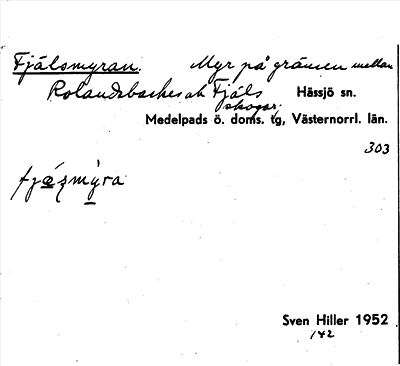 Fjälsmyran. Myr på gränsen mellan
Rolandsbackes ch Fjäls Hässjö sn.
skogar.
Medelpads ö. doms. tg, Västernorrl. län.
303
fjǽ̱ʒmỳ̱ra
Sven Hiller 1952
142